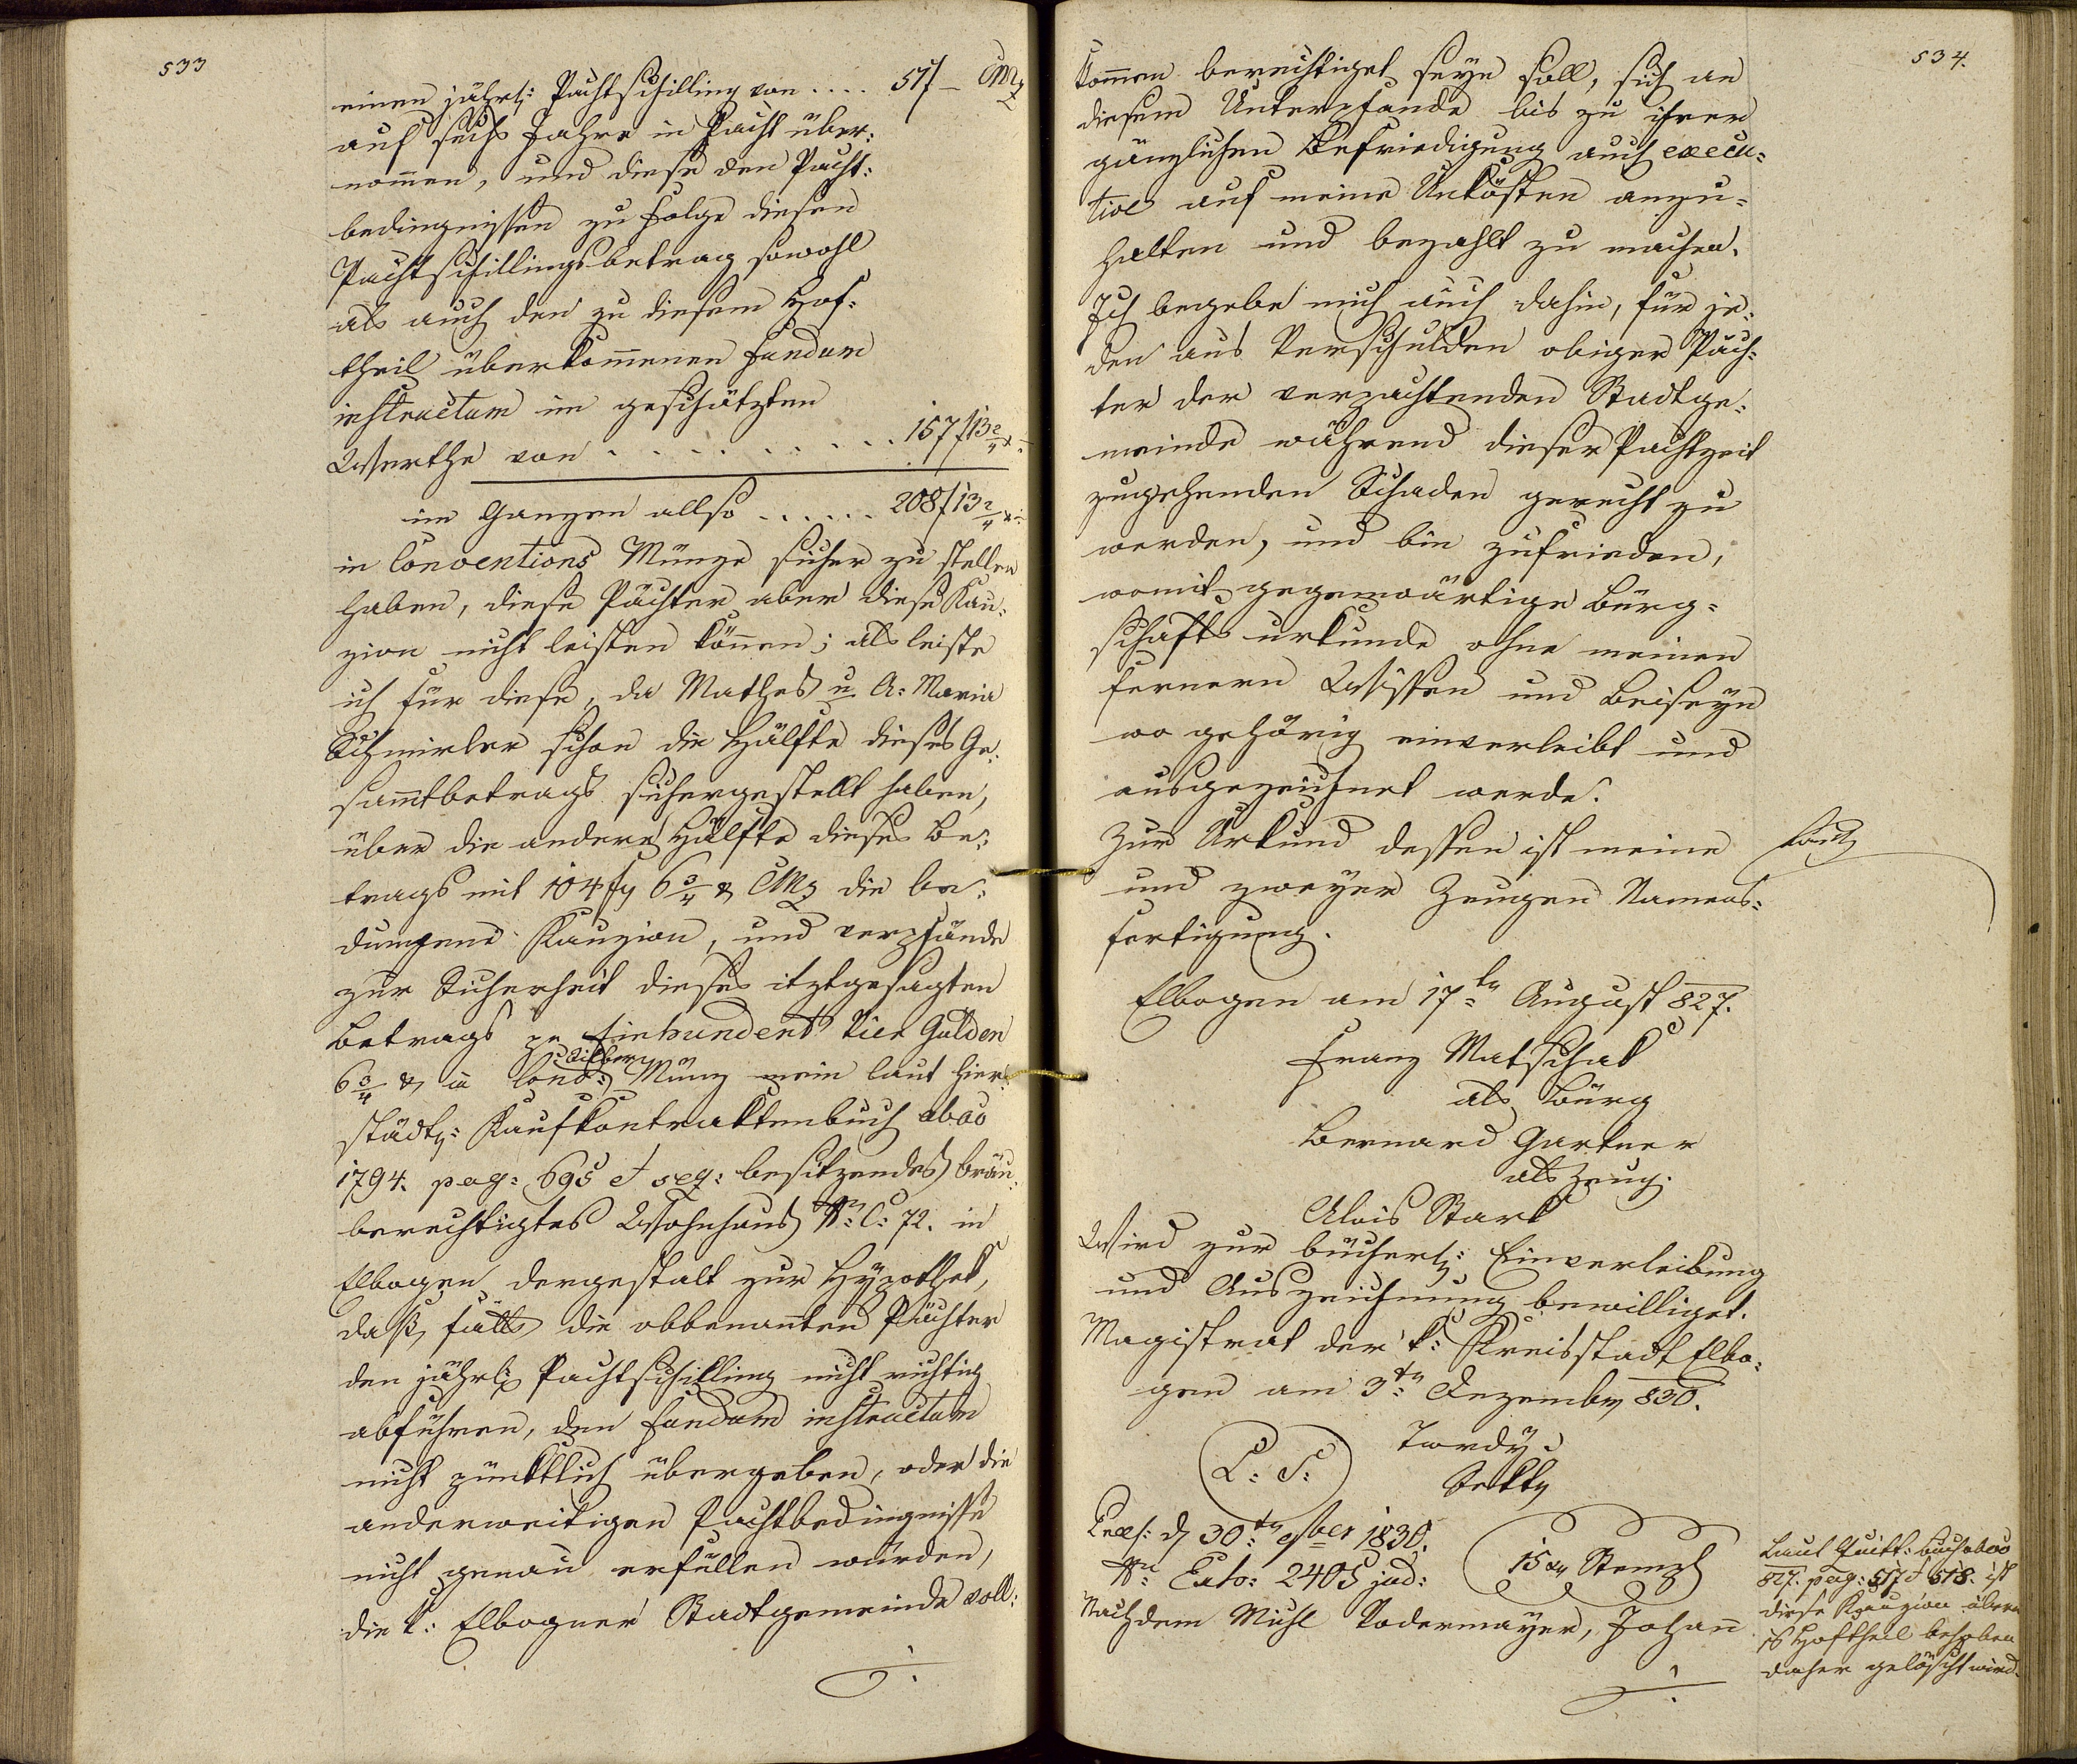 533
einen jährl: Pachtschilling von .... 51f – CMz
auf sechs Jahre in Pacht über:
nommen, und diese den Pacht:
bedingnissen zu Folge diesen
Pachtschillingsbetrag sowohl
als auch den zu diesem Hof:
theil überkommenen Fundum
instructum im geschätzten
Werthe von . . . . . . . . . 157f 13 2/4 x
im Ganzen allso . . . . . . 208f 13 2/4 x
in Conventions Münze sicher zu stellen
haben, diese Pächter aber diese Kau:
zion nicht leisten können; als leiste
ich für diese, da Mathes u. A: Maria
Schmieler schon die Hälfte dieses Ge:
sammtbetrags sichergestellt haben,
über die andere Hälfte dieses Be:
trags mit 104 f 6 3/4 x CMz die be:
dungene Kauzion, und verpfände
zur Sicherheit dieses itztgesagten
Betrags pr Einhundert Vier Gulden
Silber
6 3/4 x in Conv: Münz mein laut hier:
städt: Kaufkontraktenbuch abao
1794. pag: 695 et seq: besitzendes bräu:
berechtigtes Wohnhaus No: C: 72. in
Elbogen dergestalt zur Hÿpothek,
daß, falls die obbenannten Pächter
den jährl: Pachtschilling nicht richtig
abführen, den Fundum instructum
nicht pünktlich übergeben, oder die
anderweitigen Pachtbedingnisse
nicht genau erfüllen würden,
die k: Elbogner Stadtgemeinde voll:
534.
kommen berechtiget seyn soll, sich an
diesem Unterpfande bis zu ihrer
gänzlichen Befriedigung auch execu:
tive auf meine Unkösten anzu:
halten und bezahlt zu machen.
Ich begebe mich auch dahin, für je:
den aus Verschulden obiger Päch:
ter der verpachtenden Stadtge:
meinde während dieser Pachtzeit
zugehenden Schaden gerecht zu
werden, und bin zufrieden,
womit gegenwärtige Bürg:
schafts urkunde ohne meinen
fernern Wissen und Beiseyn
wo gehörig einverleibt und
ausgezeichnet werde.
Zur Urkund dessen ist meine
und zweyer Zeugen Namens:
fertigung.
Elbogen am 17ten August 827.
Franz Matschak
als Bürg
Bernard Gartner
als Zeug.
Alois Stark
Wird zur bücherl: Einverleibung
und Auszeichnung bewilliget.
Magistrat der k: Kreisstadt Elbo:
gen am 3ten Dezember 830.
L: S:
Twrdÿ
Sekkty
Praes: d 30ten 9ber 1830.
No Exto: 2405 jud:
15 xr Stempl
Nachdem Michl Podermayer, Johann
Laut Quitt: buch abao
827. pag: 517 et 518. ist
diese Kauzion übern
Hoftheil behoben
daher gelöscht wird.